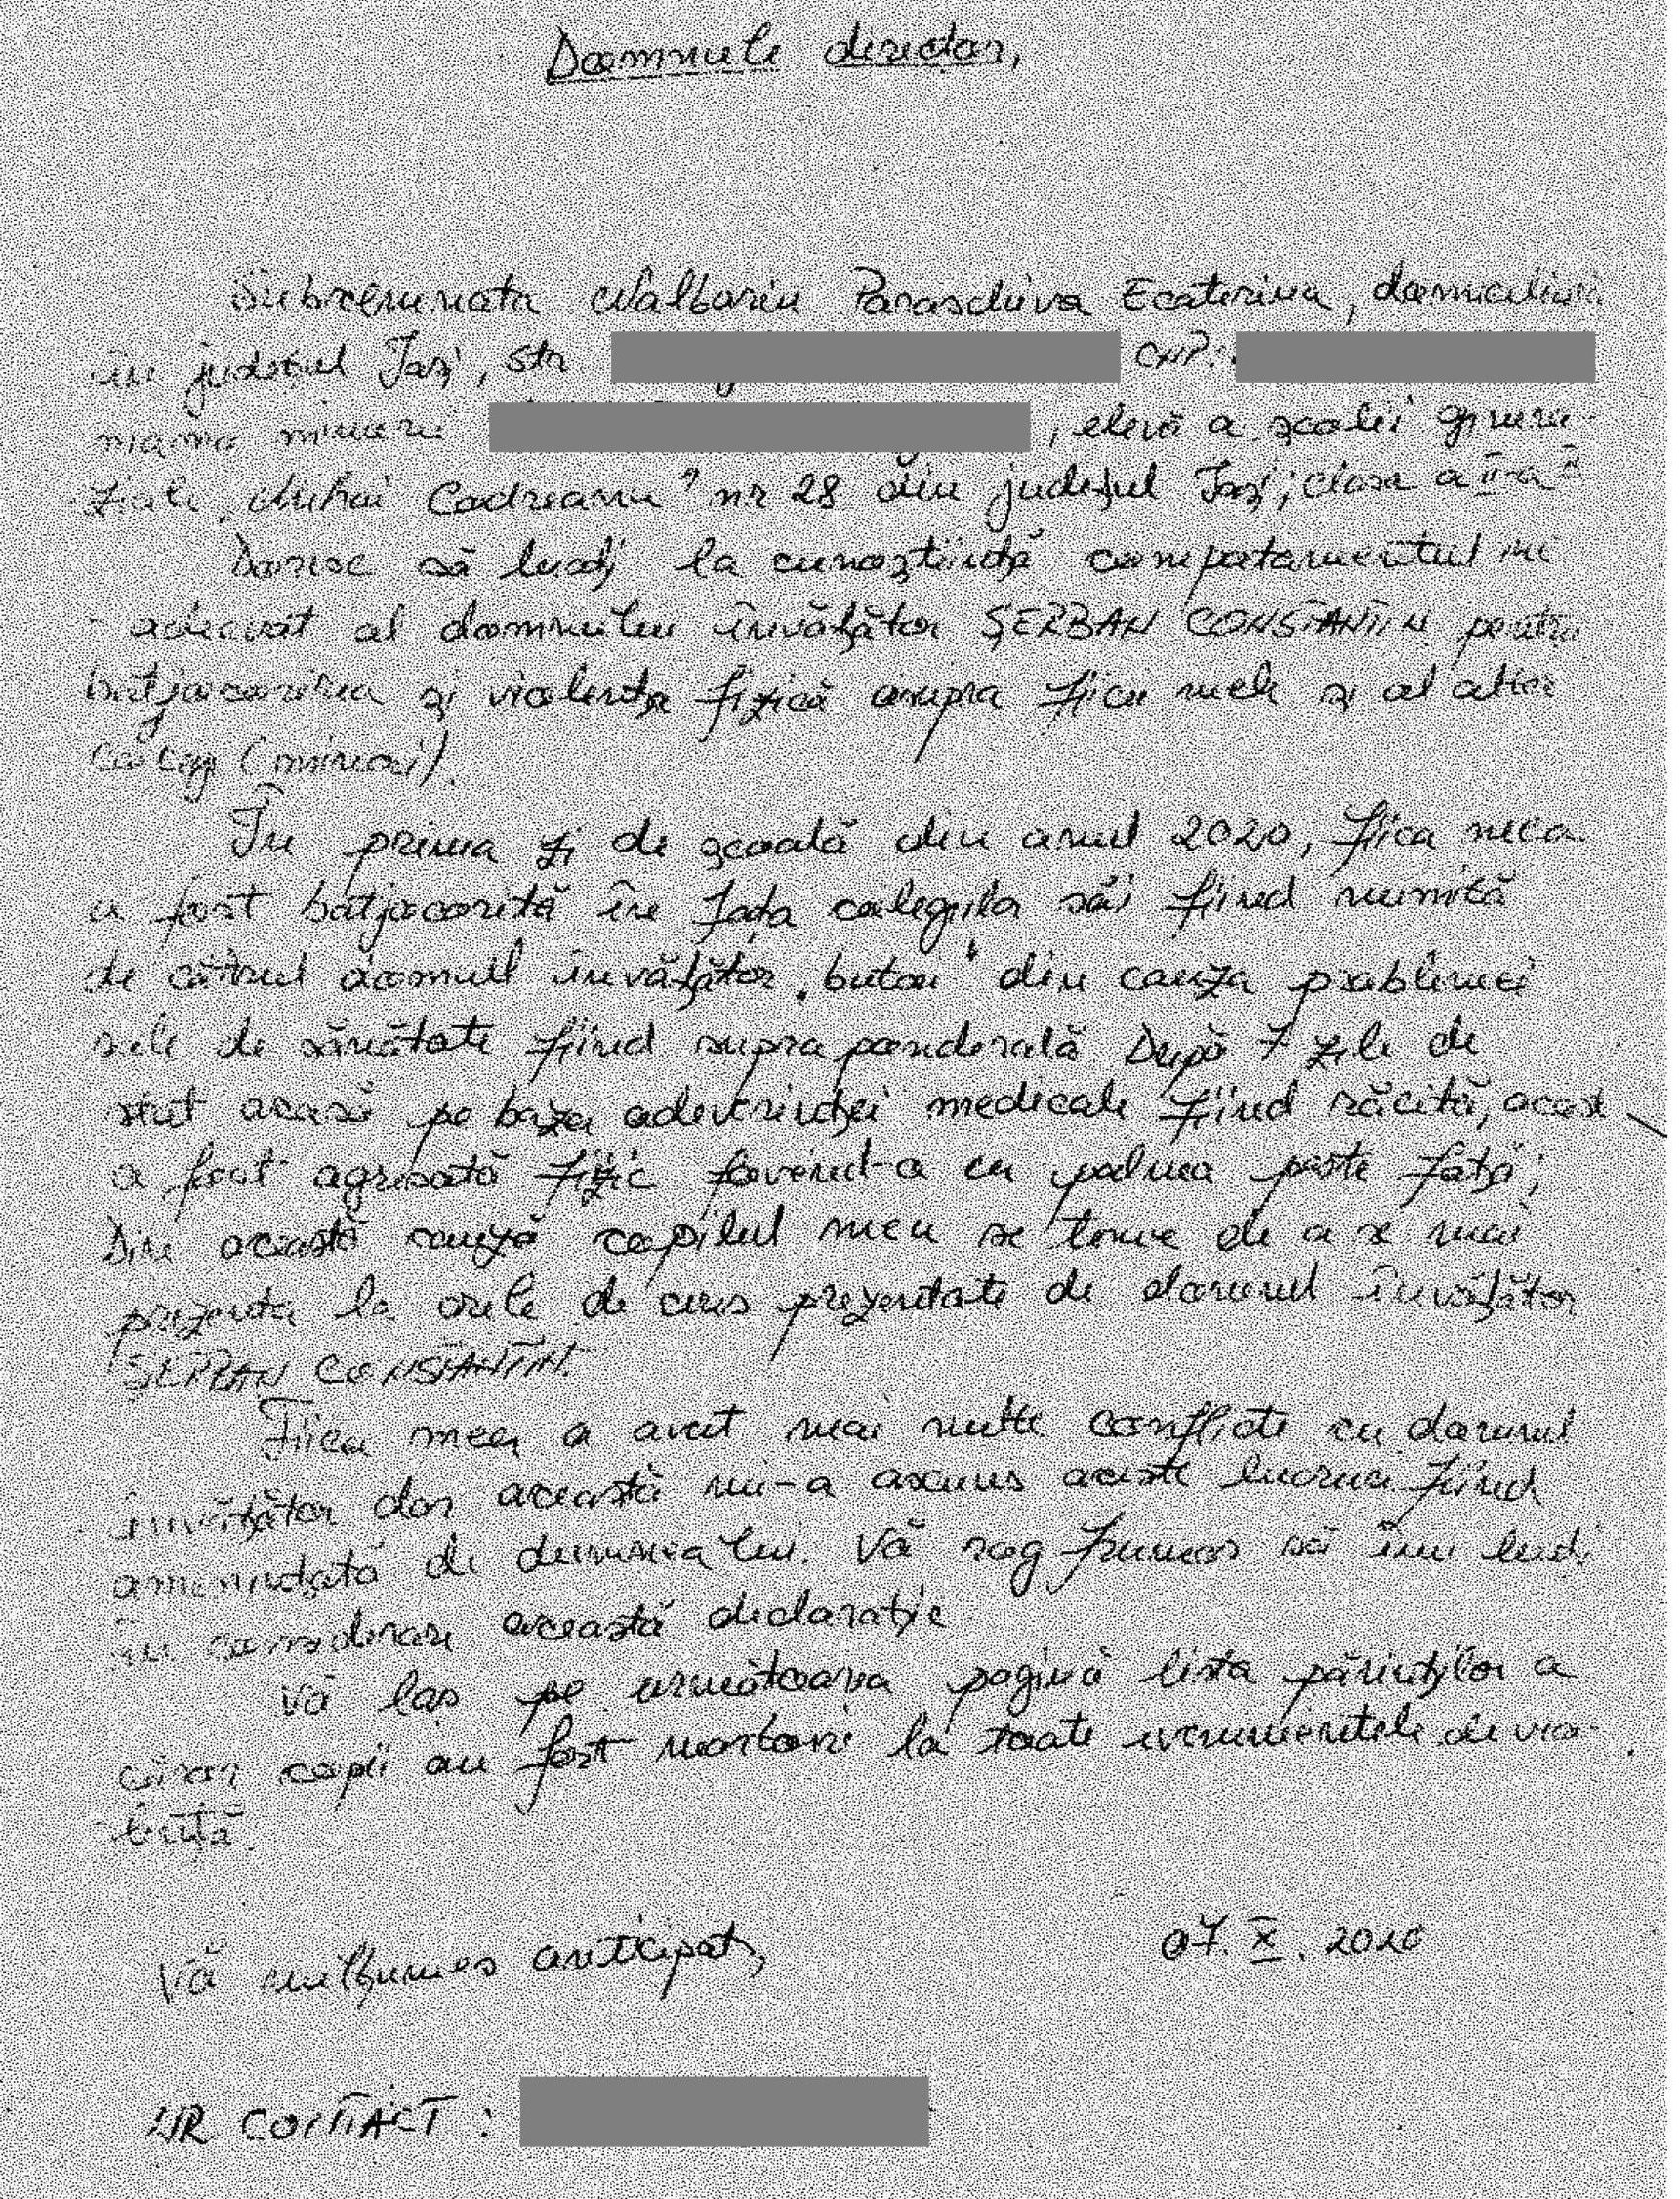 Domnule director,
Subsemnata Nalbariu Paraschiva Ecaterina, domiciliată
în județul Iași, str CNP:
mama minorei , elevă a școlii gimna-
ziale „Mihai Codreanu" nr 28 din județul Iași; clasa a II-a B
Doresc să luați la cunoștiință compotamentul in
adecvat al domnului învățător ȘERBAN CONSTANTIN pentru
batjocorirea și violența fizică asupra fiicei mele și al altor
colegi (minori).
În prima zi de școală din anul 2020, fiica mea
a fost batjocorită în fața colegilor săi fiind numită
de cătrul domnul învățător „butoi" din cauza problemei
sale de sănătate fiind supraponderală După 7 zile de
stat acasă pe baza adeverinței medicale fiind răcită, aceasta
a fost agresată fizic lovind-a cu palma peste față;
Din această cauză copilul meu se teme de a se mai
prezenta la orele de curs prezentate de domnul învățător
ȘERBAN CONSTANTIN.
Fiica mea a avut mai multe conflicte cu domnul
învățător dar această mi-a ascuns aceste lucruri fiind
amenințată de dumnealui. Vă rog frumos să îmi luați
în considerare această declarație
Vă las pe următoarea pagină lista părinților a
căror copii au fost martori la toate evenimentele de vio-
lență.
Vă mulțumes anticipat, 07. X. 2020
NR CONTACT :